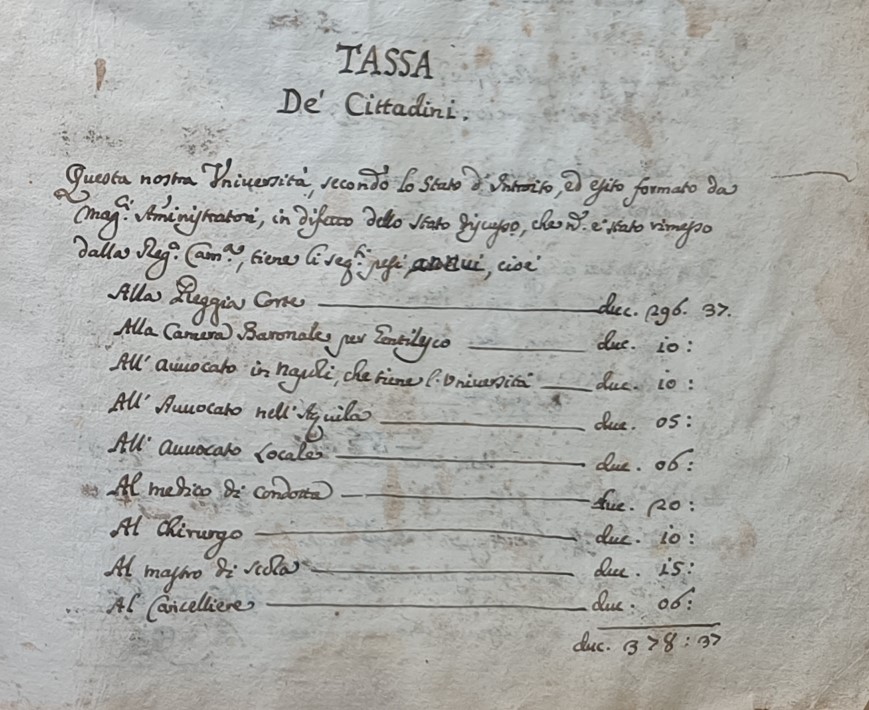 TASSA
De' Cittadini.
Questa nostra Università, secondo lo Stato d'Introito, ed esito formato da
Mag.ci Aministratori, in difetto dello stato discusso, che n.n è stato rimesso
dalla Reg.a Cam.a, tiene li seg.ti pesi annui, cioè
Alla Reggia Corte — duc. 296. 37.
Alla Camera Baronale per Gentilesco — duc. 10:
All' avvocato in Napoli, che tiene l'Università — duc. 10:
All' Avvocato nell'Aquila — duc. 05:
All' avvocato Locale — duc. 06:
Al medico di condotta — duc. 20:
Al Chirurgo — duc. 10:
Al mastro di scola — duc. 15:
Al Cancelliere — duc. 06:
duc. 378:37